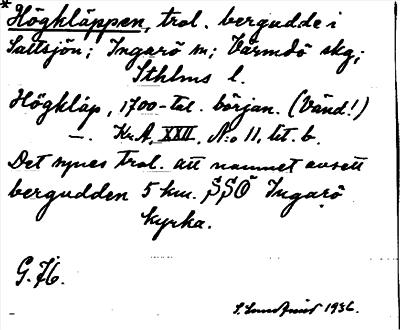 * Högkläppen, trol. bergudde i
Saltsjön; Ingarö sn; Värmdö skg;
Sthlms l.
Högkläp, 1700-tal. början. (Vänd!)
—. Kr.A. XXII, N:o 11, lit. b.
Det synes trol. att namnet avsett
bergudden 5 km. SSÖ Ingarö
kyrka.
G. 76.
1936.